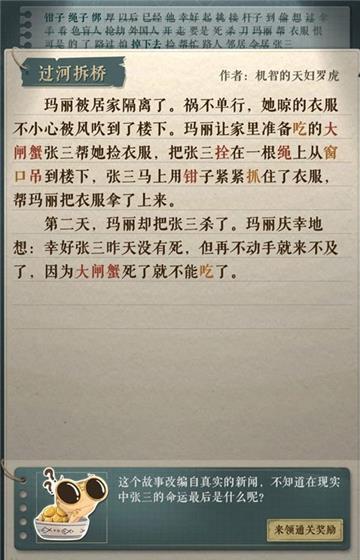 钳子 绳子 绑 厚 以后 已经 他 幸好 起 挑 接 杆子 到 偷 想 过 拿
手 看 色盲人 抢劫 外国人 开 走 要 是 死 杀 刀 玛丽 帮 衣服 恨
可是 的 了 路过 怕 掉下去 捡 帮忙 路人 邻居 会 居 张三
过河拆桥
作者：机智的天妇罗虎
玛丽被居家隔离了。祸不单行，她晾的衣服
不小心被风吹到了楼下。玛丽让家里准备吃的大
闸蟹张三帮她捡衣服，把张三拴在一根绳上从窗
口吊到楼下，张三马上用钳子紧紧抓住了衣服，
帮玛丽把衣服拿了上来。
第二天，玛丽却把张三杀了。玛丽庆幸地
想：幸好张三昨天没有死，但再不动手就来不及
了，因为大闸蟹死了就不能吃了。
这个故事改编自真实的新闻，不知道在现实
中张三的命运最后是什么呢？
来领通关奖励